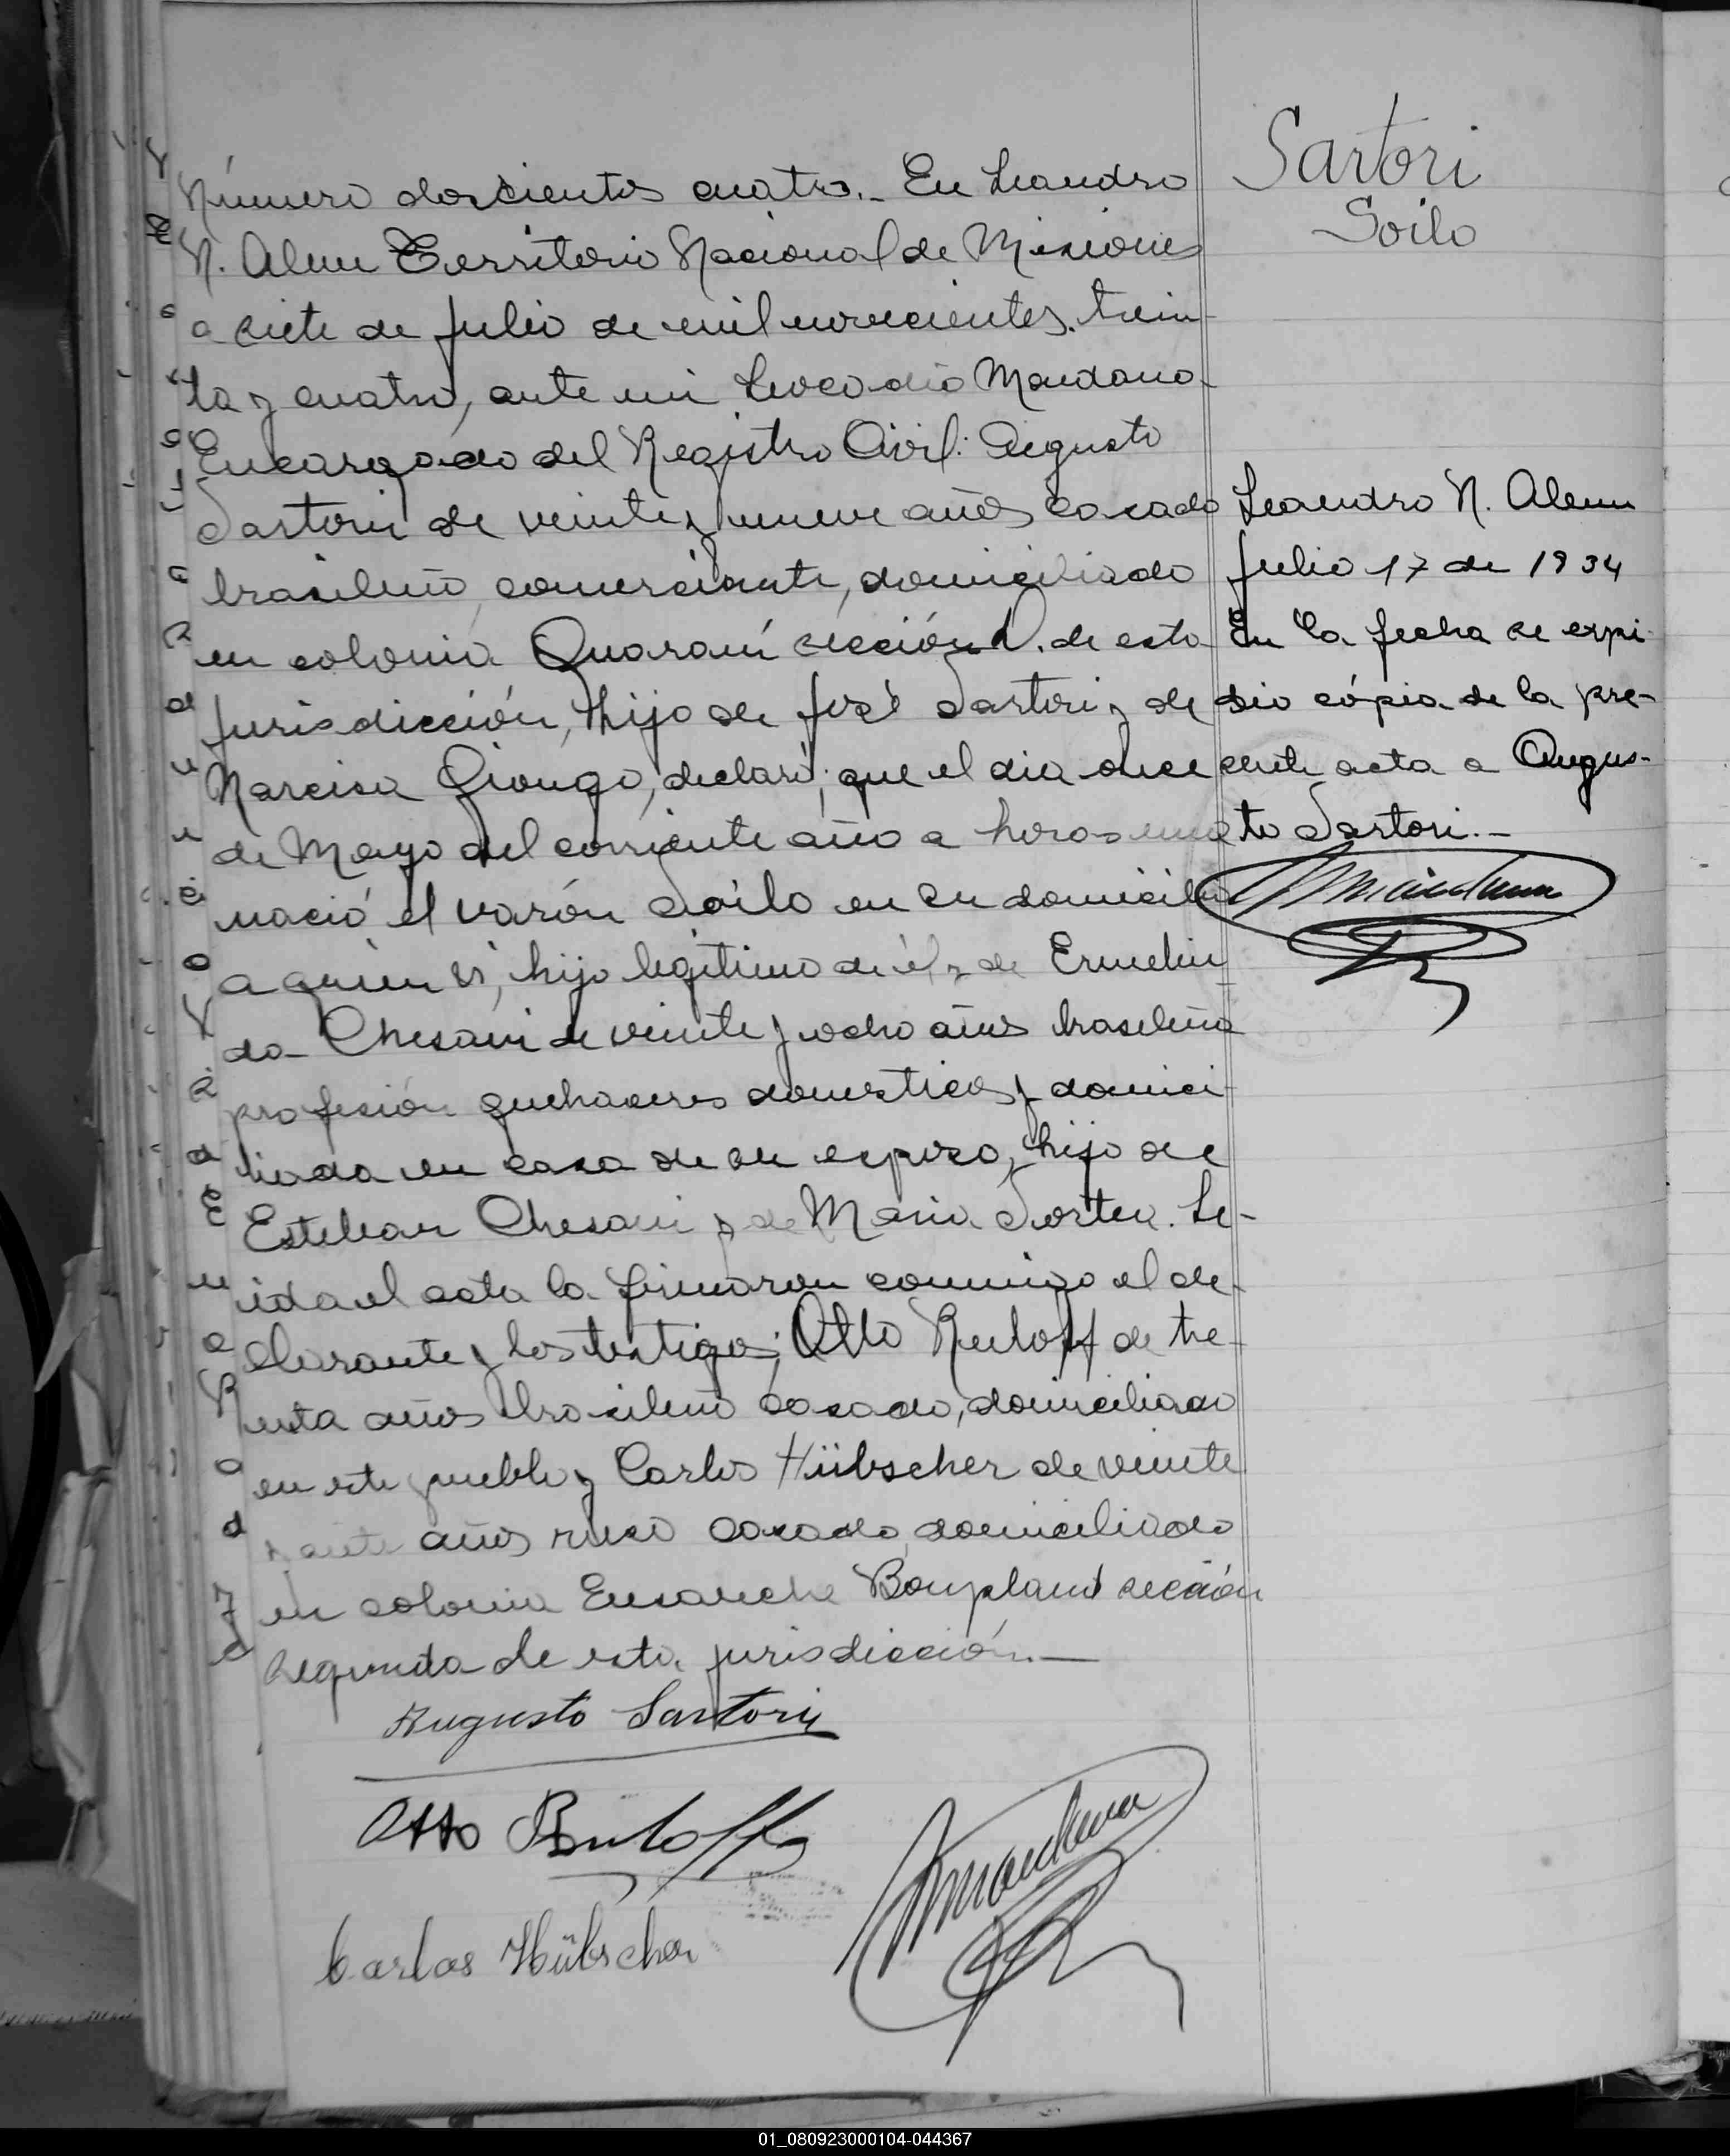 Sartori
Soilo
Número doscientos cuatro.- En Leandro
N. Alem Territorio Nacional de Misiones
a siete de Julio de mil novecientos. trein-
ta y cuatro, ante mi Leocadio Mandano-
Encargado del Registro Civil: Augusto
Sartori de veinte y nueve años casado
brasileño, comerciante, domiciliado
en colonia Guaraní sección de esta
jurisdicción, hijo de José Sartori y de
Narcisa Giongo, declaró; que el dia once
de Mayo del corriente año a horas una
nació el varón Soilo en su domicilio
a quien ví, hijo legítimo de él y de Ermelin-
da Chesani de veinte y ocho años brasileña
profesión quehaceres domesticos y domici-
liada en casa de su esposo, hijo de
Esteban Chesani y de Maria Sorten. Le-
ida el acta la firmaron conmigo el de-
clarante y los testigos; Otto Ruloff de tre-
inta años brasileño casado, domiciliado
en este pueblo y Carlos Hübscher de veinte
y siete años ruso casado, domiciliado
en colonia Ensanche Bonpland sección
segunda de esta jurisdicción.—
Leandro N. Alem
Julio 17 de 1934
En la fecha se expi-
dio cópia de la pre-
sente acta a Augus-
to Sartori.-
Augusto Sartori
Otto
Carlos Hübscher
01_080923000104-044367